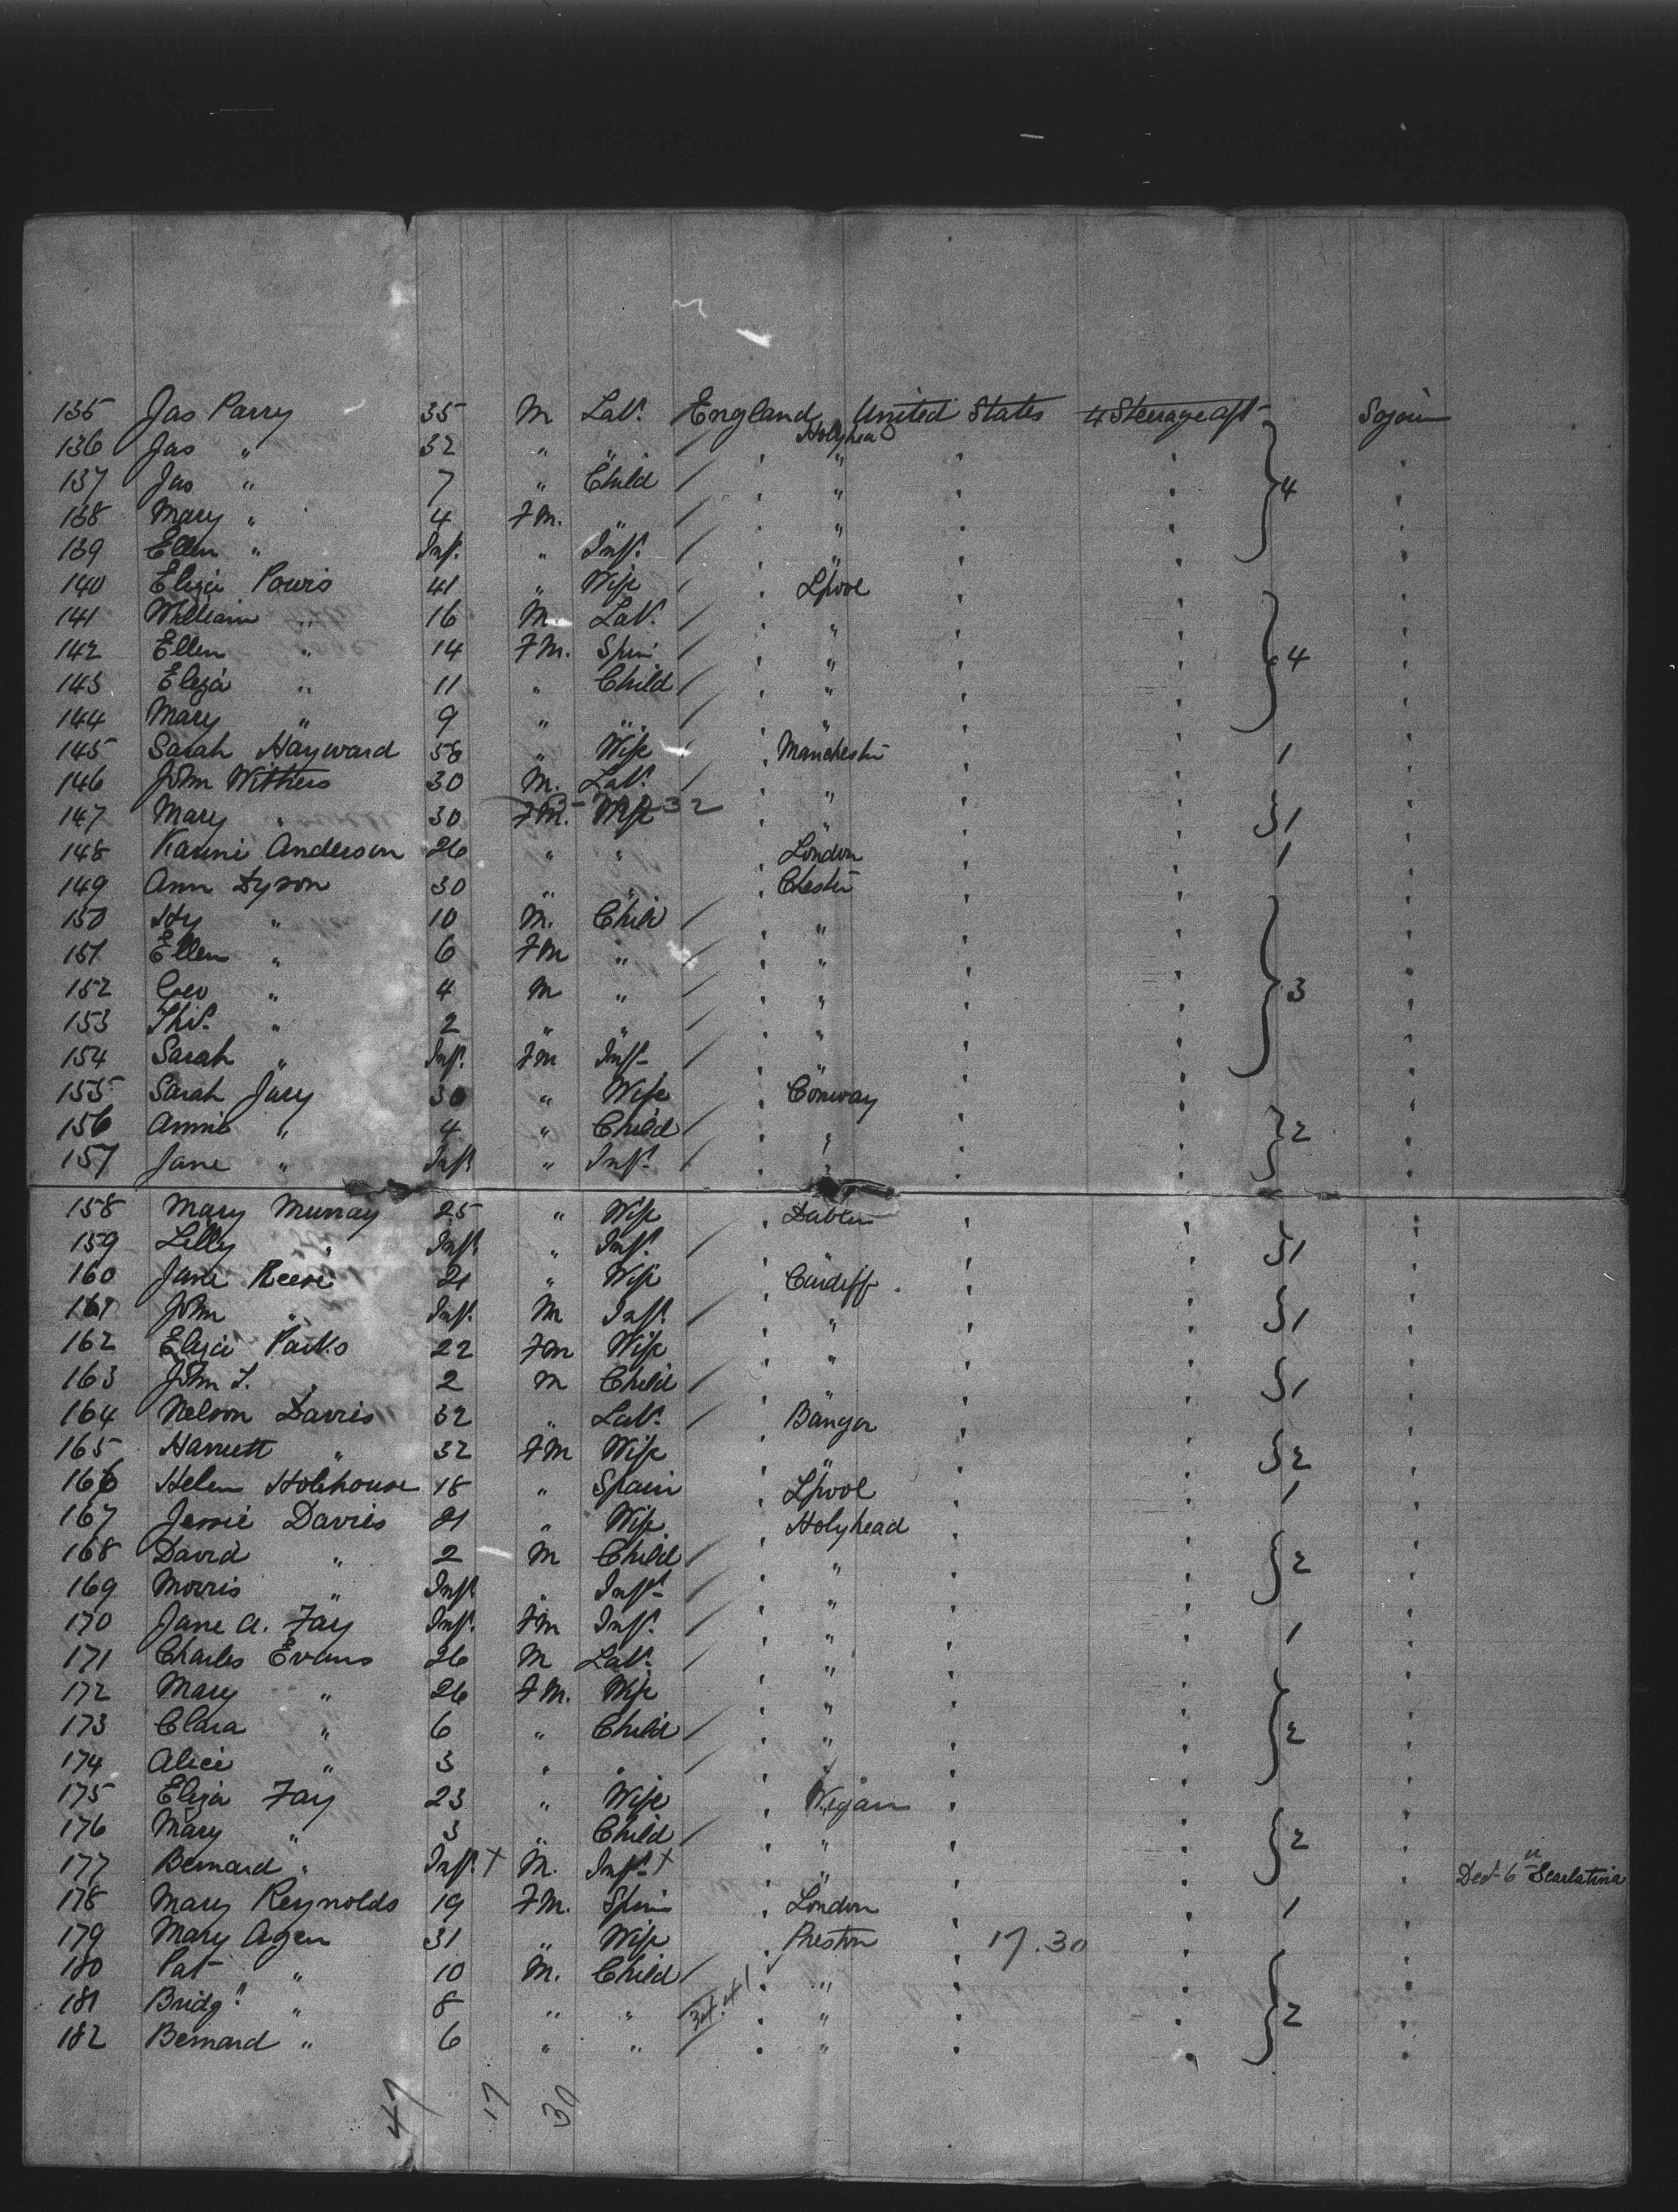 135 Jas Parry 35 M Lab. England Holyhead United States 4 Steerage aft Sojour
136 Jas " 32 " " / " 4
137 Jas " 7 " Child / "
138 Mary " 4 FM. " / "
139 Ellen " Inft. " Inft. / "
140 Eliza Powis 41 " Wife / Lpool
141 William " 16 M. Lab. / " 4
142 Ellen " 14 FM. Spin / "
143 Eliza " 11 " Child / "
144 Mary " 9 " " / "
145 Sarah Hayward 58 " Wife Manchester 1
146 John Withers 30 M. Lab. / "
147 Mary " 30 FM. Wife 32 " 1
148 Anderson 26 " " London 1
149 Ann Dyson 30 " " Chester
150 Hy " 10 M. Child / "
151 Ellen " 6 FM " / "
152 Geo " 4 M " / " 3
153 " 2 " " / "
154 Sarah " Inft. FM Inft / "
155 Sarah Jary 30 " Wife Conway
156 Annie " 4 " Child / " 2
157 Jane " Inft " Inft. / "
158 Mary Murray 25 " Wife Dublin
159 Lilly " Inft. " Inft. / 1
160 Jane Reese 21 " Wife Cardiff
161 John " Inft. M Inft. / " 1
162 Eliza 22 FM Wife "
163 John T. " 2 M Child / 1
164 Nelson Davies 32 " Lab. / Bangor
165 Harriett " 32 FM Wife " 2
166 Helen Hobhouse 18 " Spain Lpool 1
167 Jessie Davies 21 " Wife Holyhead
168 David " 2 M Child / " 2
169 Morris " Inft " Inft / "
170 Jane A. Fay Inft. FM Inft. / " 1
171 Charles Evans 26 M Lab. / "
172 Mary " 26 FM. Wife "
173 Clara " 6 " Child / " 2
174 Alice " 3 " " / "
175 Eliza Fay 23 " Wife Wigan
176 Mary " 3 " Child / " 2
177 Bernard " Inft. X M. Inft X " Ded 6th Scarlatina
178 Mary Reynolds 19 FM. Spin London 1
179 Mary Agen 31 " Wife Preston 17.30
180 Pat " 10 M. Child / "
181 Bridgt " 8 " " " 2
182 Bernard " 6 " " "
47 17 30